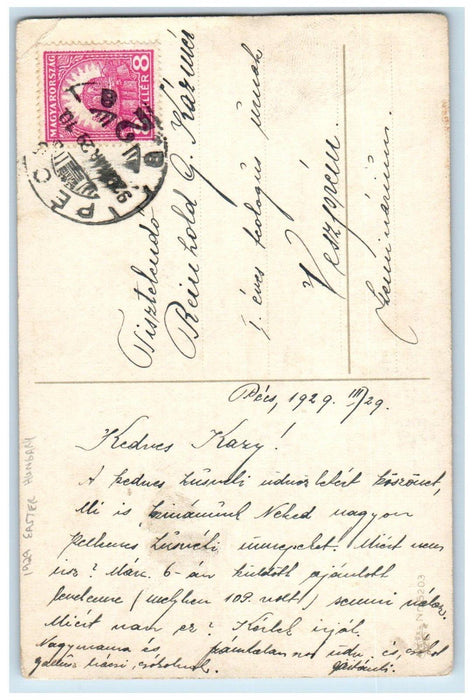 MAGYARORSZÁG
8
FILLÉR
PÉCS
Tisztelendő
Reinhold G. Kázmér
I. éves teologus úrnak
Veszprém.
Szeminárium.
Pécs, 1929. III/29.
Kedves Kazy!
A kedves húsvéti üdvözletért köszönet,
Mi is kivánunk Neked nagyon
kellemes húsvéti ünnepeket. Miért nem
irsz? Márc. 6-án küldött ajánlott
levelemre (melyben 109. volt) semmi válasz.
Miért van ez? Kérlek irjál.
Nagymama és számtalanszor üdv. és csókol
csókolnak.
1929 EASTER HUNGARY